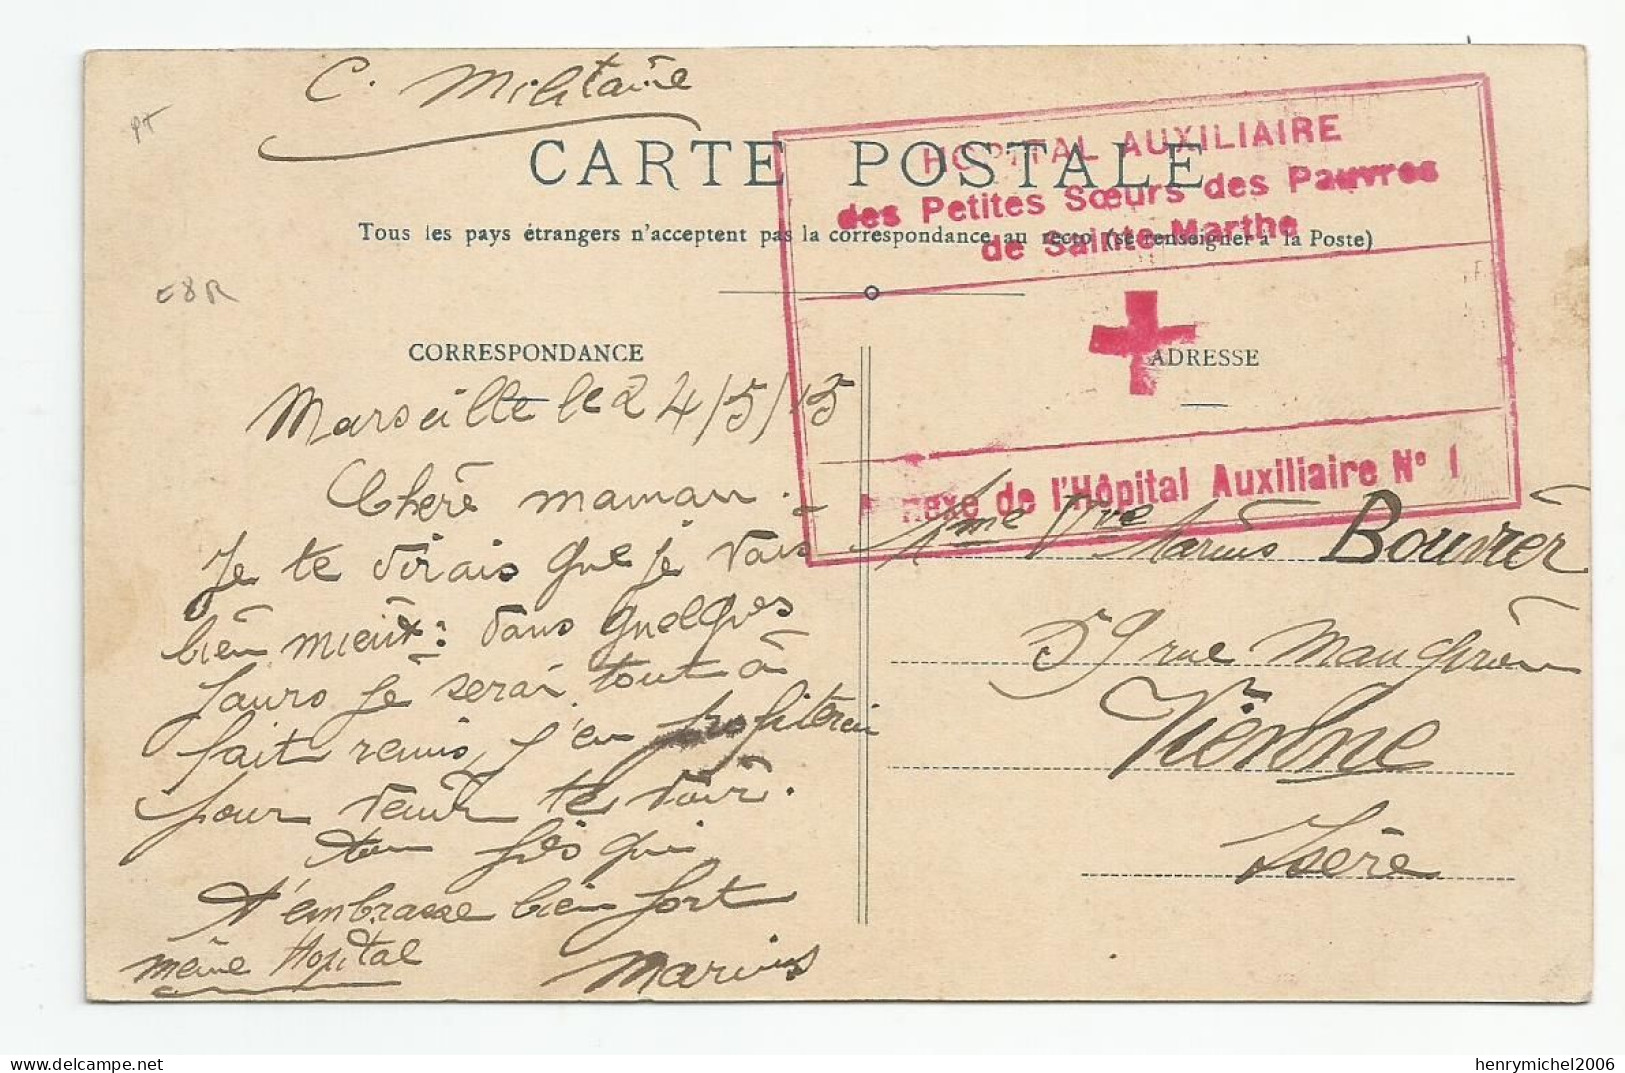 C. Militaire
CARTE POSTALE
Tous les pays étrangers n'acceptent pas la correspondance au recto (se renseigner à la Poste)
HOPITAL AUXILIAIRE
des Petites Sœurs des Pauvres
de Sainte-Marthe
Annexe de l'Hôpital Auxiliaire N° 1
PT
E8R
CORRESPONDANCE
Marseille le 24/5/15
Chère maman.
Je te dirais que je vais
bien mieux: dans quelques
jours je serai tout à
fait remis, j'en profiterai
pour venir te voir.
ton fils qui
t'embrasse bien fort
même Hopital
Marius
ADRESSE
Mme Vve Marius Bouvier
59 rue
Vienne
Isère
delcampe.net
henrymichel2006